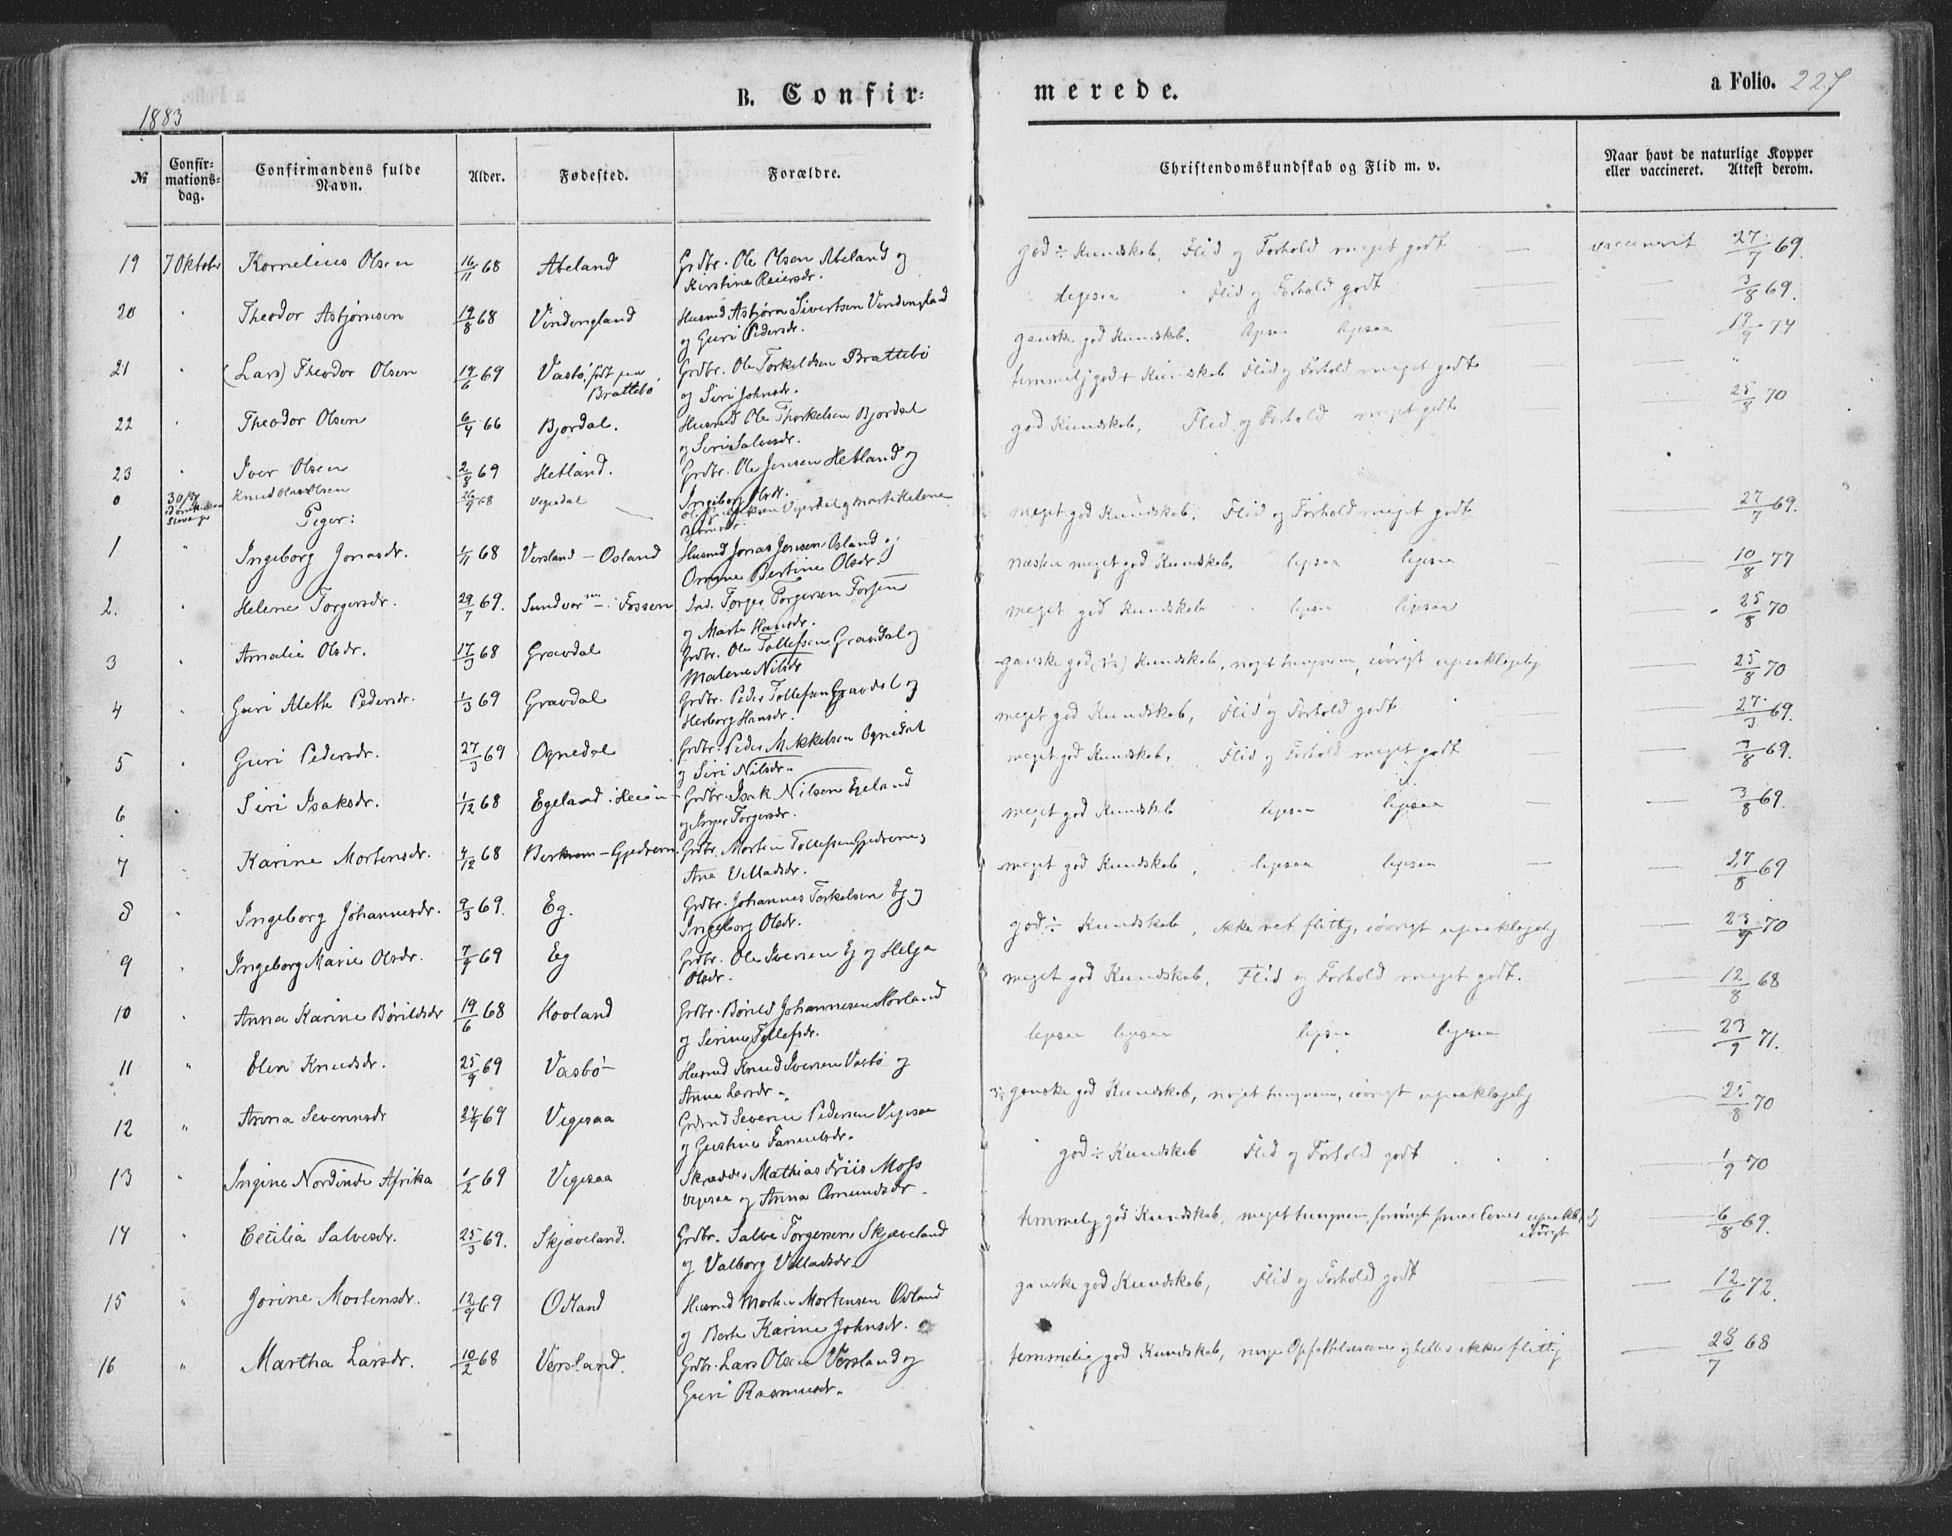 1883
B. Confir-
merede.
a Folio. 227
№
Confir-
mations-
dag.
Confirmandens fulde
Navn.
Alder.
Fødested.
Forældre.
Christendomskundskab og Flid m. v.
Naar havt de naturlige Kopper
eller vaccineret. Attest derom.
19 7 Oktober Kornelius Olsen 16/11 68 Abeland Grdbr. Ole Olsen Abeland og
Kirstine Reiersdr.
god ÷ Kundskab, Flid og Forhold meget godt — vaccinerit 27/7 69.
20 " Theodor Asbjørnsen 19/8 68 Vindingland Husmd Asbjørn Sivertsen Vindingland
og Guri Pedersdr.
ligesaa " Flid og Forhold godt — 3/8 69.
21 " (Lars) Theodor Olsen 14/6 69 Vasbø, født paa
Brattebø
Grdbr. Ole Torkeldsen Brattebø
og Siri Johnsdr.
ganske god Kundskab. ligesaa ligesaa 19/9 74
22 " Theodor Olsen 6/4 66 Bjordal. Husmd Ole Thorkelsen Bjordal
og Siri Salvesdr.
temmelig god + Kundskab Flid og Forhold meget godt — "
23 " Iver Olsen 2/8 69 Hetland. Grdbr. Ole Jensen Hetland og
Ingeborg Olsdr.
god Kundskab, Flid og Forhold meget godt — 25/8 70
0 30/9 Knud Olaus Olsen 26/9 68 Vegedal
Piger:
meget god Kundskab, Flid og Forhold meget godt 27/7 69.
1 " Ingeborg Jonasdr. 1/11 68 Versland – Osland Husmd Jonas Jensen Osland og
Omme Bertine Olsdr.
næsten meget god Kundskab. ligesaa ligesaa — 10/8 77
2. " Helene Torgersdr. 29/7 69. Sundvor – Fossen Ind. Torger Torgersen Forsen
og Marte Hansdr.
meget god Kundskab ligesaa ligesaa 25/8 70
3 " Amalie Olsdr. 17/3 68 Gravdal Grdbr. Ole Tollefsen Gravdal og
Malene Nilsdr
ganske god (3½) Kundskab, noget tungnem, iøvrigt upaaklagelig 25/8 70
4 " Guri Alethe Pedersdr. 1/3 69 Gravdal Grdbr. Peder Tollefsen Gravdal og
Herborg Hansdr.
meget god Kundskab, Flid og Forhold godt — 27/3 69.
5 " Guri Pedersdr. 27/3 69 Ognedal Grdbr. Peder Mikkelsen Ognedal
og Siri Nilsdr.
meget god Kundskab, Flid og Forhold meget godt — 3/8 69.
6 " Siri Isaksdr. 1/12 68 Egeland i Heien Grdbr. Isak Nilsen Egeland
og Inger Torgersdr.
meget god Kundskab ligesaa ligesaa — 3/8 69.
7 " Karine Mortensdr. 4/12 68 Berkrem – Gjedrem Grdbr. Morten Tollefsen Gjedrem og
Ane Villadsdr.
meget god Kundskab, ligesaa ligesaa — 27/8 69
8 " Ingeborg Johannesdr. 9/3 69. Eg. Grdbr. Johannes Torkelsen Eg og
Ingeborg Olsdr.
god ÷ Kundskab, ikke ret flittig, iøvrigt upaaklagelig — 23/9 70
9 " Ingeborg Marie Olsdr. 7/9 69 Eeg Grdbr. Ole Iversen Eg og Helga
Olsdr.
meget god Kundskab, Flid og Forhold meget godt. — 12/8 68
10 " Anna Karine Børildsdr 19/6 68 Hovland Grdbr. Børild Johannesen Hovland
og Serine Tollefsdr.
ligesaa ligesaa ligesaa ligesaa — 23/9 71.
11 " Elen Knudsdr. 25/9 69 Vasbø Husmd Knud Iversen Vasbø og
Anna Larsdr.
ganske god Kundskab, noget tungnem, iøvrigt upaaklagelig — 25/8 70
12 " Anna Severinsdr 24/4 69 Vegesaa Grdmd Severin Pedersen Vegesaa
og Gustine Samuelsdr.
god ÷ Kundskab Flid og Forhold godt — 1/9 70
13 " Ingine Nordinde Afrika 1/2 69 Vegesaa Skrædder Mathias Friis Moss
Vegesaa og Anna Omundsdr.
temmelig god Kundskab, meget tungnem iøvrigt — 6/8 69.
14 " Cecilia Salvesdr. 25/3 69. Skjæveland. Grdbr. Salve Torgersen Skjæveland
og Valborg Villadsdr.
ganske god Kundskab, Flid og Forhold godt — 12/6 72.
15 " Jorine Mortensdr. 12/9 69 Odland Husmd Morten Mortensen Odland
og Berte Karine Johnsdr.
16 " Martha Larsdr. 10/2 68 Versland. Grdbr. Lars Olsen Versland og
Guri Rasmusdr.
temmelig god Kundskab, ringe Opfattelsesevne og heller ikke flittig — 28/7 68